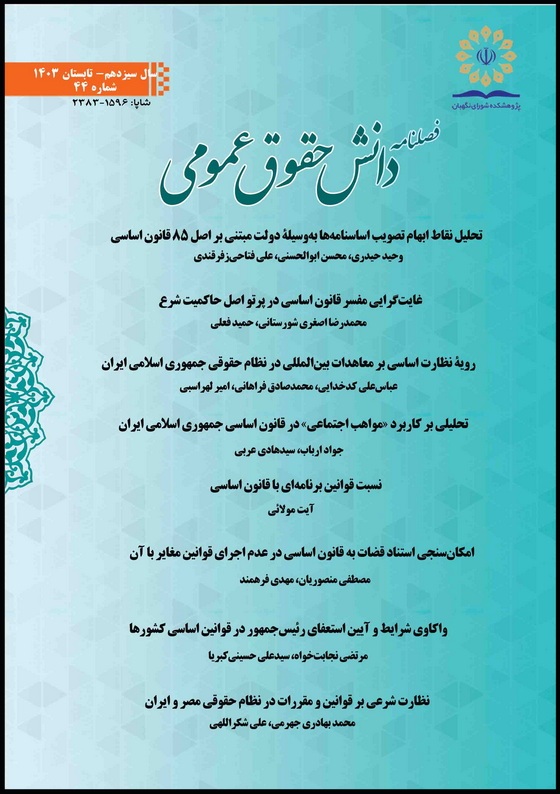 سال سیزدهم- تابستان ۱۴۰۳
شماره ۴۴
شاپا: ۱۵۹۶-۲۳۸۳
پژوهشکده شورای نگهبان
فصلنامه دانش حقوق عمومی
تحلیل نقاط ابهام تصویب اساسنامه‌ها به‌وسیلۀ دولت مبتنی بر اصل ۸۵ قانون اساسی
وحید حیدری، محسن ابوالحسنی، علی فتاحی‌زفرقندی
غایت‌گرایی مفسر قانون اساسی در پرتو اصل حاکمیت شرع
محمدرضا اصغری شورستانی، حمید فعلی
رویۀ نظارت اساسی بر معاهدات بین‌المللی در نظام حقوقی جمهوری اسلامی ایران
عباس‌علی کدخدایی، محمدصادق فراهانی، امیر لهراسبی
تحلیلی بر کاربرد «مواهب اجتماعی» در قانون اساسی جمهوری اسلامی ایران
جواد ارباب، سیدهادی عربی
نسبت قوانین برنامه‌ای با قانون اساسی
آیت مولائی
امکان‌سنجی استناد قضات به قانون اساسی در عدم اجرای قوانین مغایر با آن
مصطفی منصوریان، مهدی فرهمند
واکاوی شرایط و آیین استعفای رئیس‌جمهور در قوانین اساسی کشورها
مرتضی نجابت‌خواه، سیدعلی حسینی‌کبریا
نظارت شرعی بر قوانین و مقررات در نظام حقوقی مصر و ایران
محمد بهادری جهرمی، علی شکراللهی